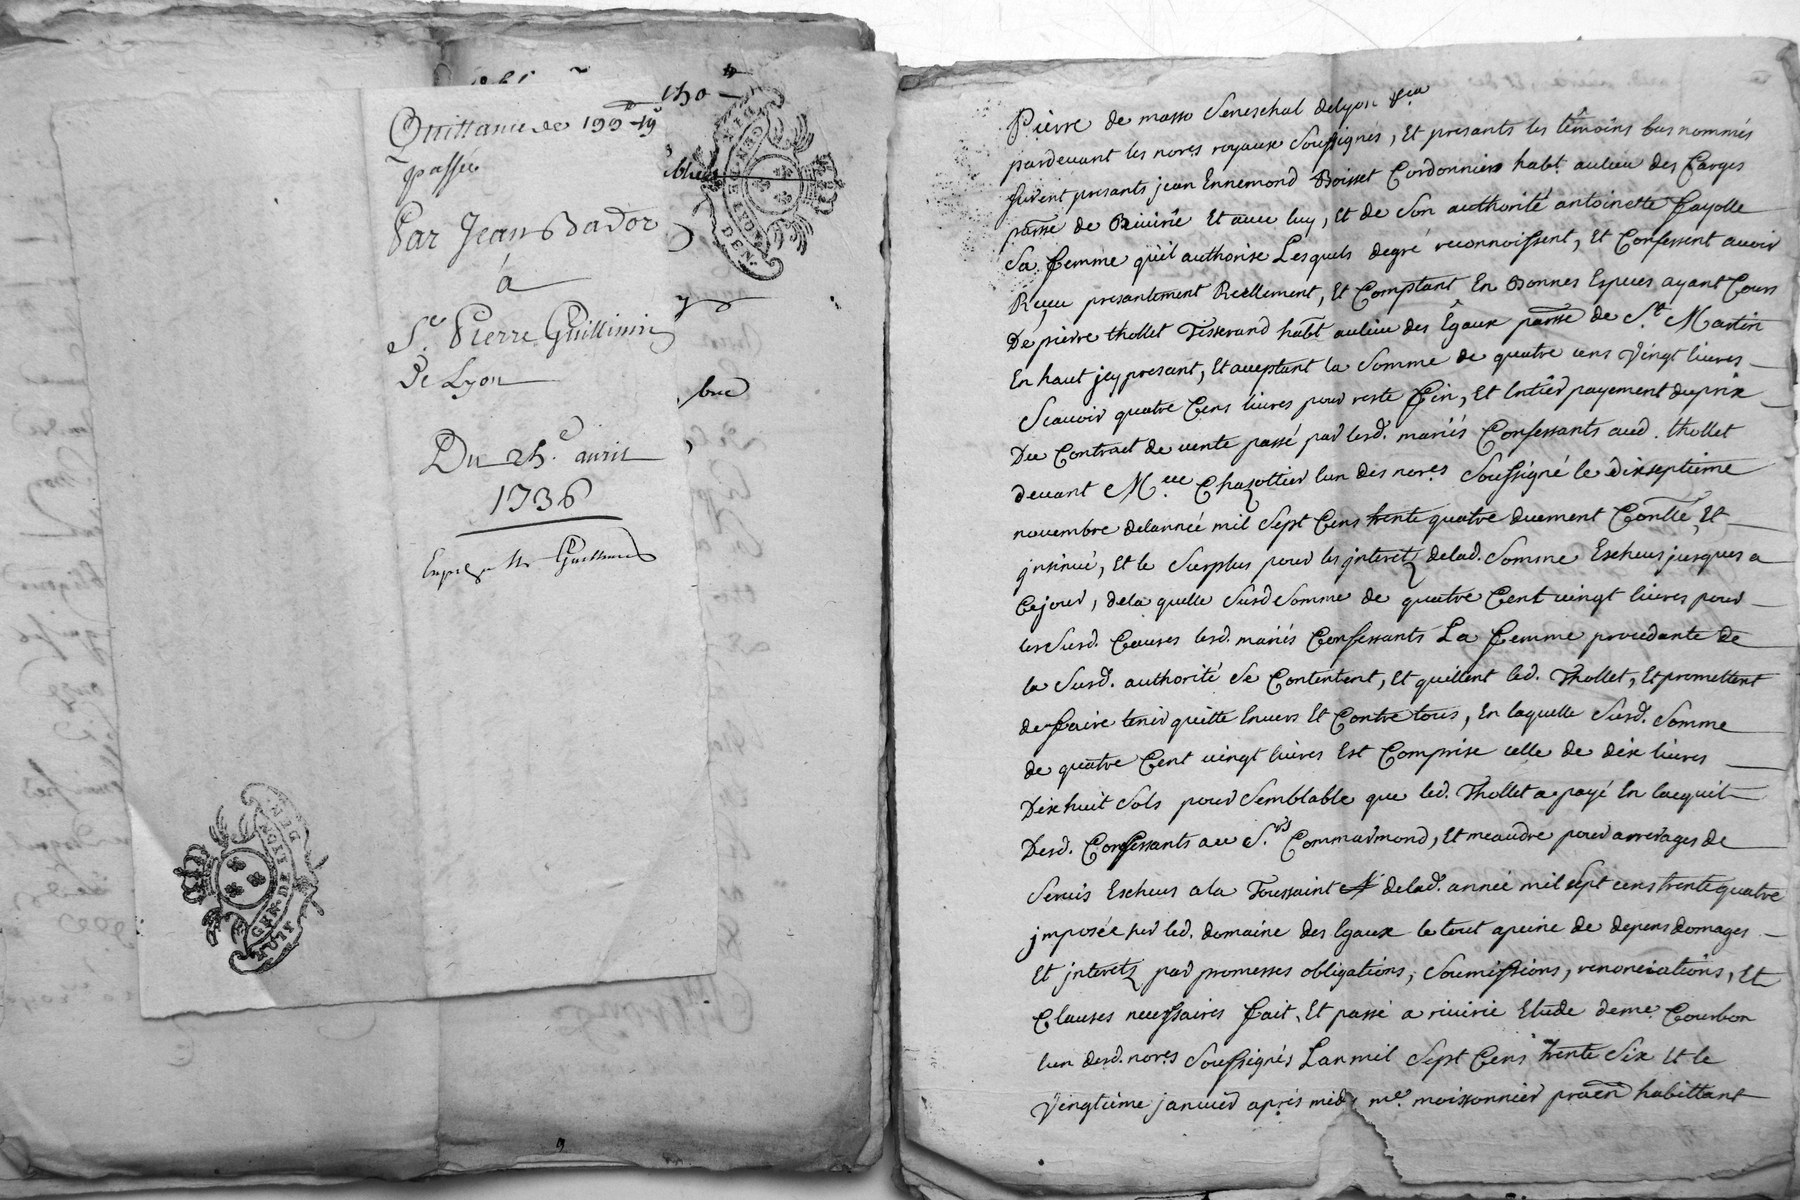 150
Quittance de 199 19
passée
Par Jean Bador
à
Sr. Pierre Guillimin
De Lyon
Du 25e. avril
1736
GEN. DE LYON
GEN. DE LYON
buc
Pierre de masso Seneschal delyon
pardevant les nores royaux Soussignés, Et presants les témoins bas nommés
furent presants jean Ennemond Boisset Cordonnier habt. aulieu des farges
parsse de Riuirie Et auec luy, Et de Son authorité antoinette fayolle
Sa femme qu'il authorise Lesquels degré reconnoissent, Et Confessent auoir
Reçeu presantement Reellement, Et Comptant En Bonnes Especes ayant Cours
De pierre thollet Tisserand habt aulieu des Égaux parsse de St. Martin
En haut jcy presant, Et acceptant la Somme de quatre cens Vingt liures
Scauoir quatre Cens liures pour reste fin, Et Entier payement duprix
Du Contract de uente passé par lesd. mariés Confessants aud. thollet
deuant Me Chazottier lun des nores Soussigné le dixseptieme
novembre delannée mil Sept Cens trente quatre duement Conllé, Et
jnsinué, Et le Surplus pour les jnteretz delad. Somme Escheus jusques a
Cejour, dela quelle Susd Somme de quatre Cent uingt liures pour
les Susd. Causes lesd. mariés Confessants La femme procedante de
la Susd. authorité Se Contentent, Et quittent led. Thollet, Et promettent
defaire tenir quitte Enuers Et Contre tous, En laquelle Susd. Somme
de quatre Cent uingt liures Est Comprise celle de dix liures
Dixhuit Sols pour Semblable que led. Thollet a payé En lacquit
Desd. Confessants au Srs Commarmond, Et meaudre pour arrerages de
Seruis Escheus ala Toussaint delad. année mil Sept cens trente quatre
jmposée sur led. domaine des Egaux le tout apeine de depens domages
Et jnteretz par promesses obligations, Soumissions, renonciations, Et
Clauses necessaires fait, Et passé a riuirie Etude deme. Courbon
lun desd. nores Soussignés Lan mil Sept Cens trente Six Et le
Vingtième januier après midy me. moissonnier praen habittant